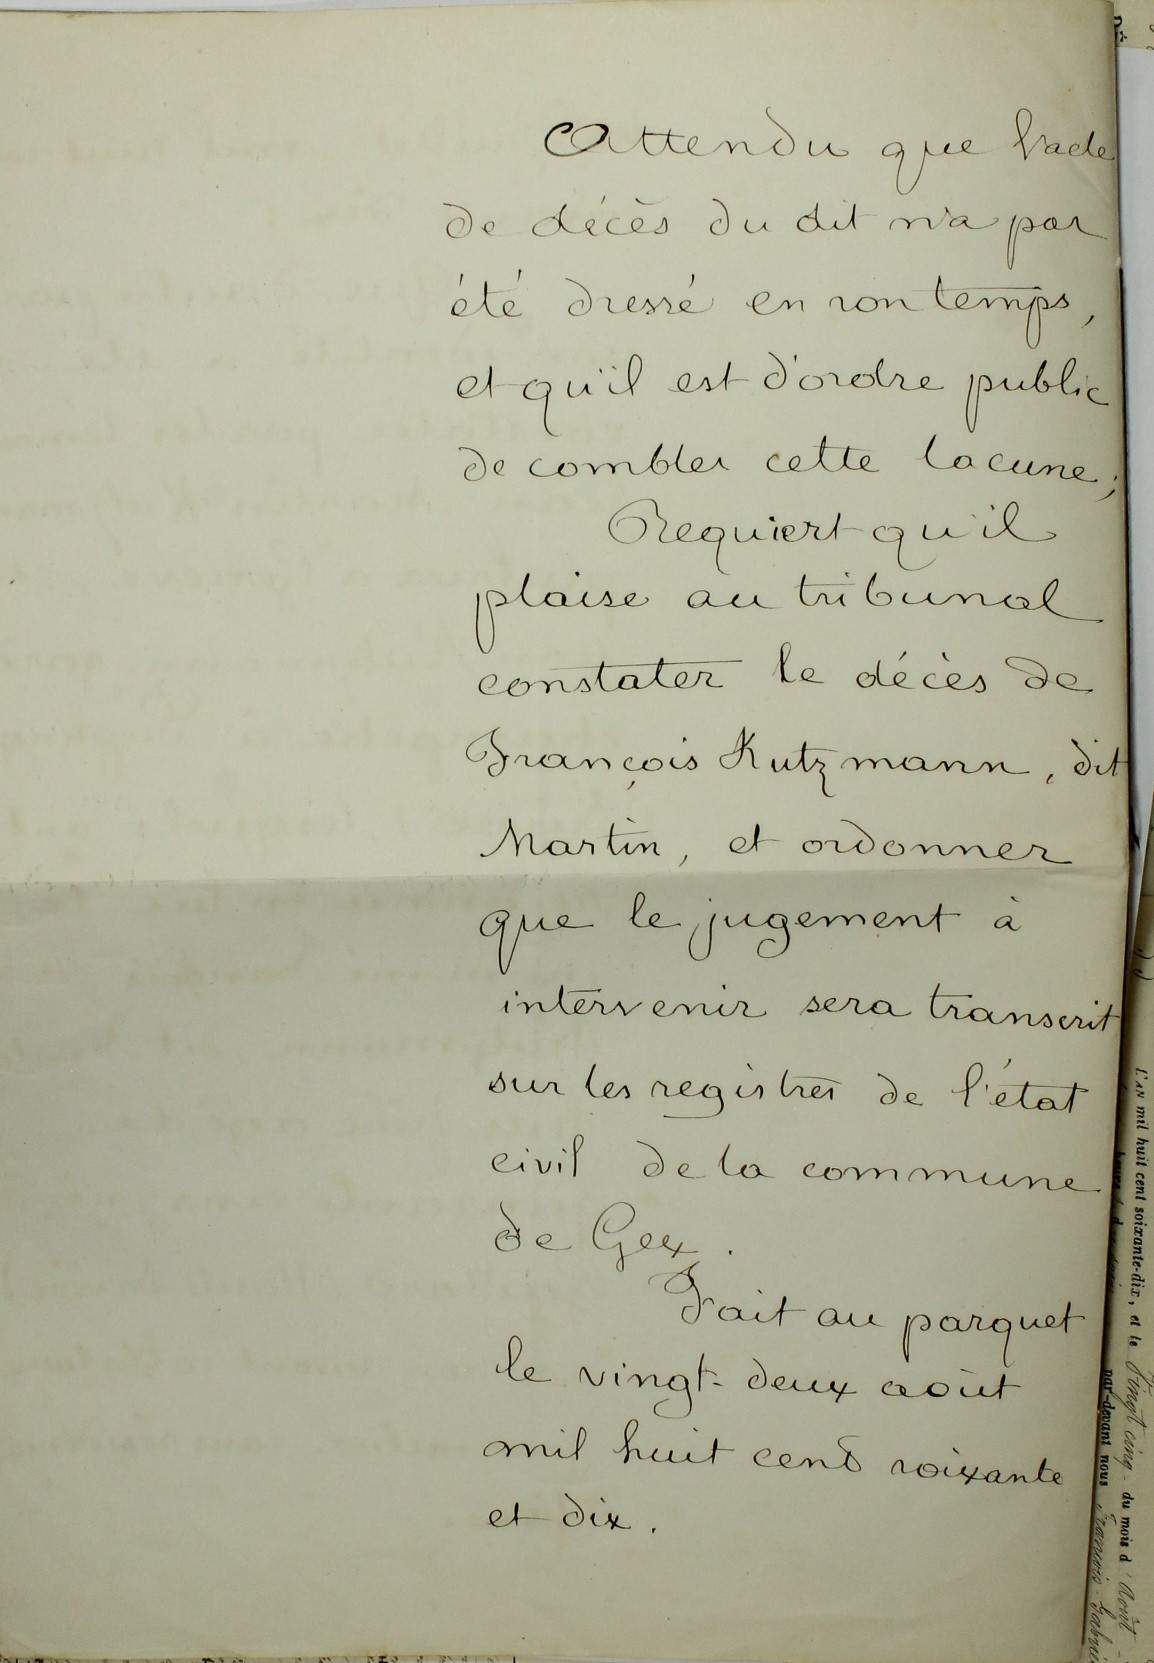 Attendu que l'acte
de décès du dit n'a pas
été dressé en son temps,
et qu'il est d'ordre public
de combler cette lacune;
Requiert qu'il
plaise au tribunal
constater le décès de
François Kutzmann, dit
Martin, et ordonner
que le jugement à
intervenir sera transcrit
sur les registres de l'état
civil de la commune
de Gex.
Fait au parquet
le vingt-deux août
mil huit cent soixante
et dix.
L'AN mil huit cent soixante-dix, et le Vingt cinq du mois d'Août
par-devant nous François Gabriel